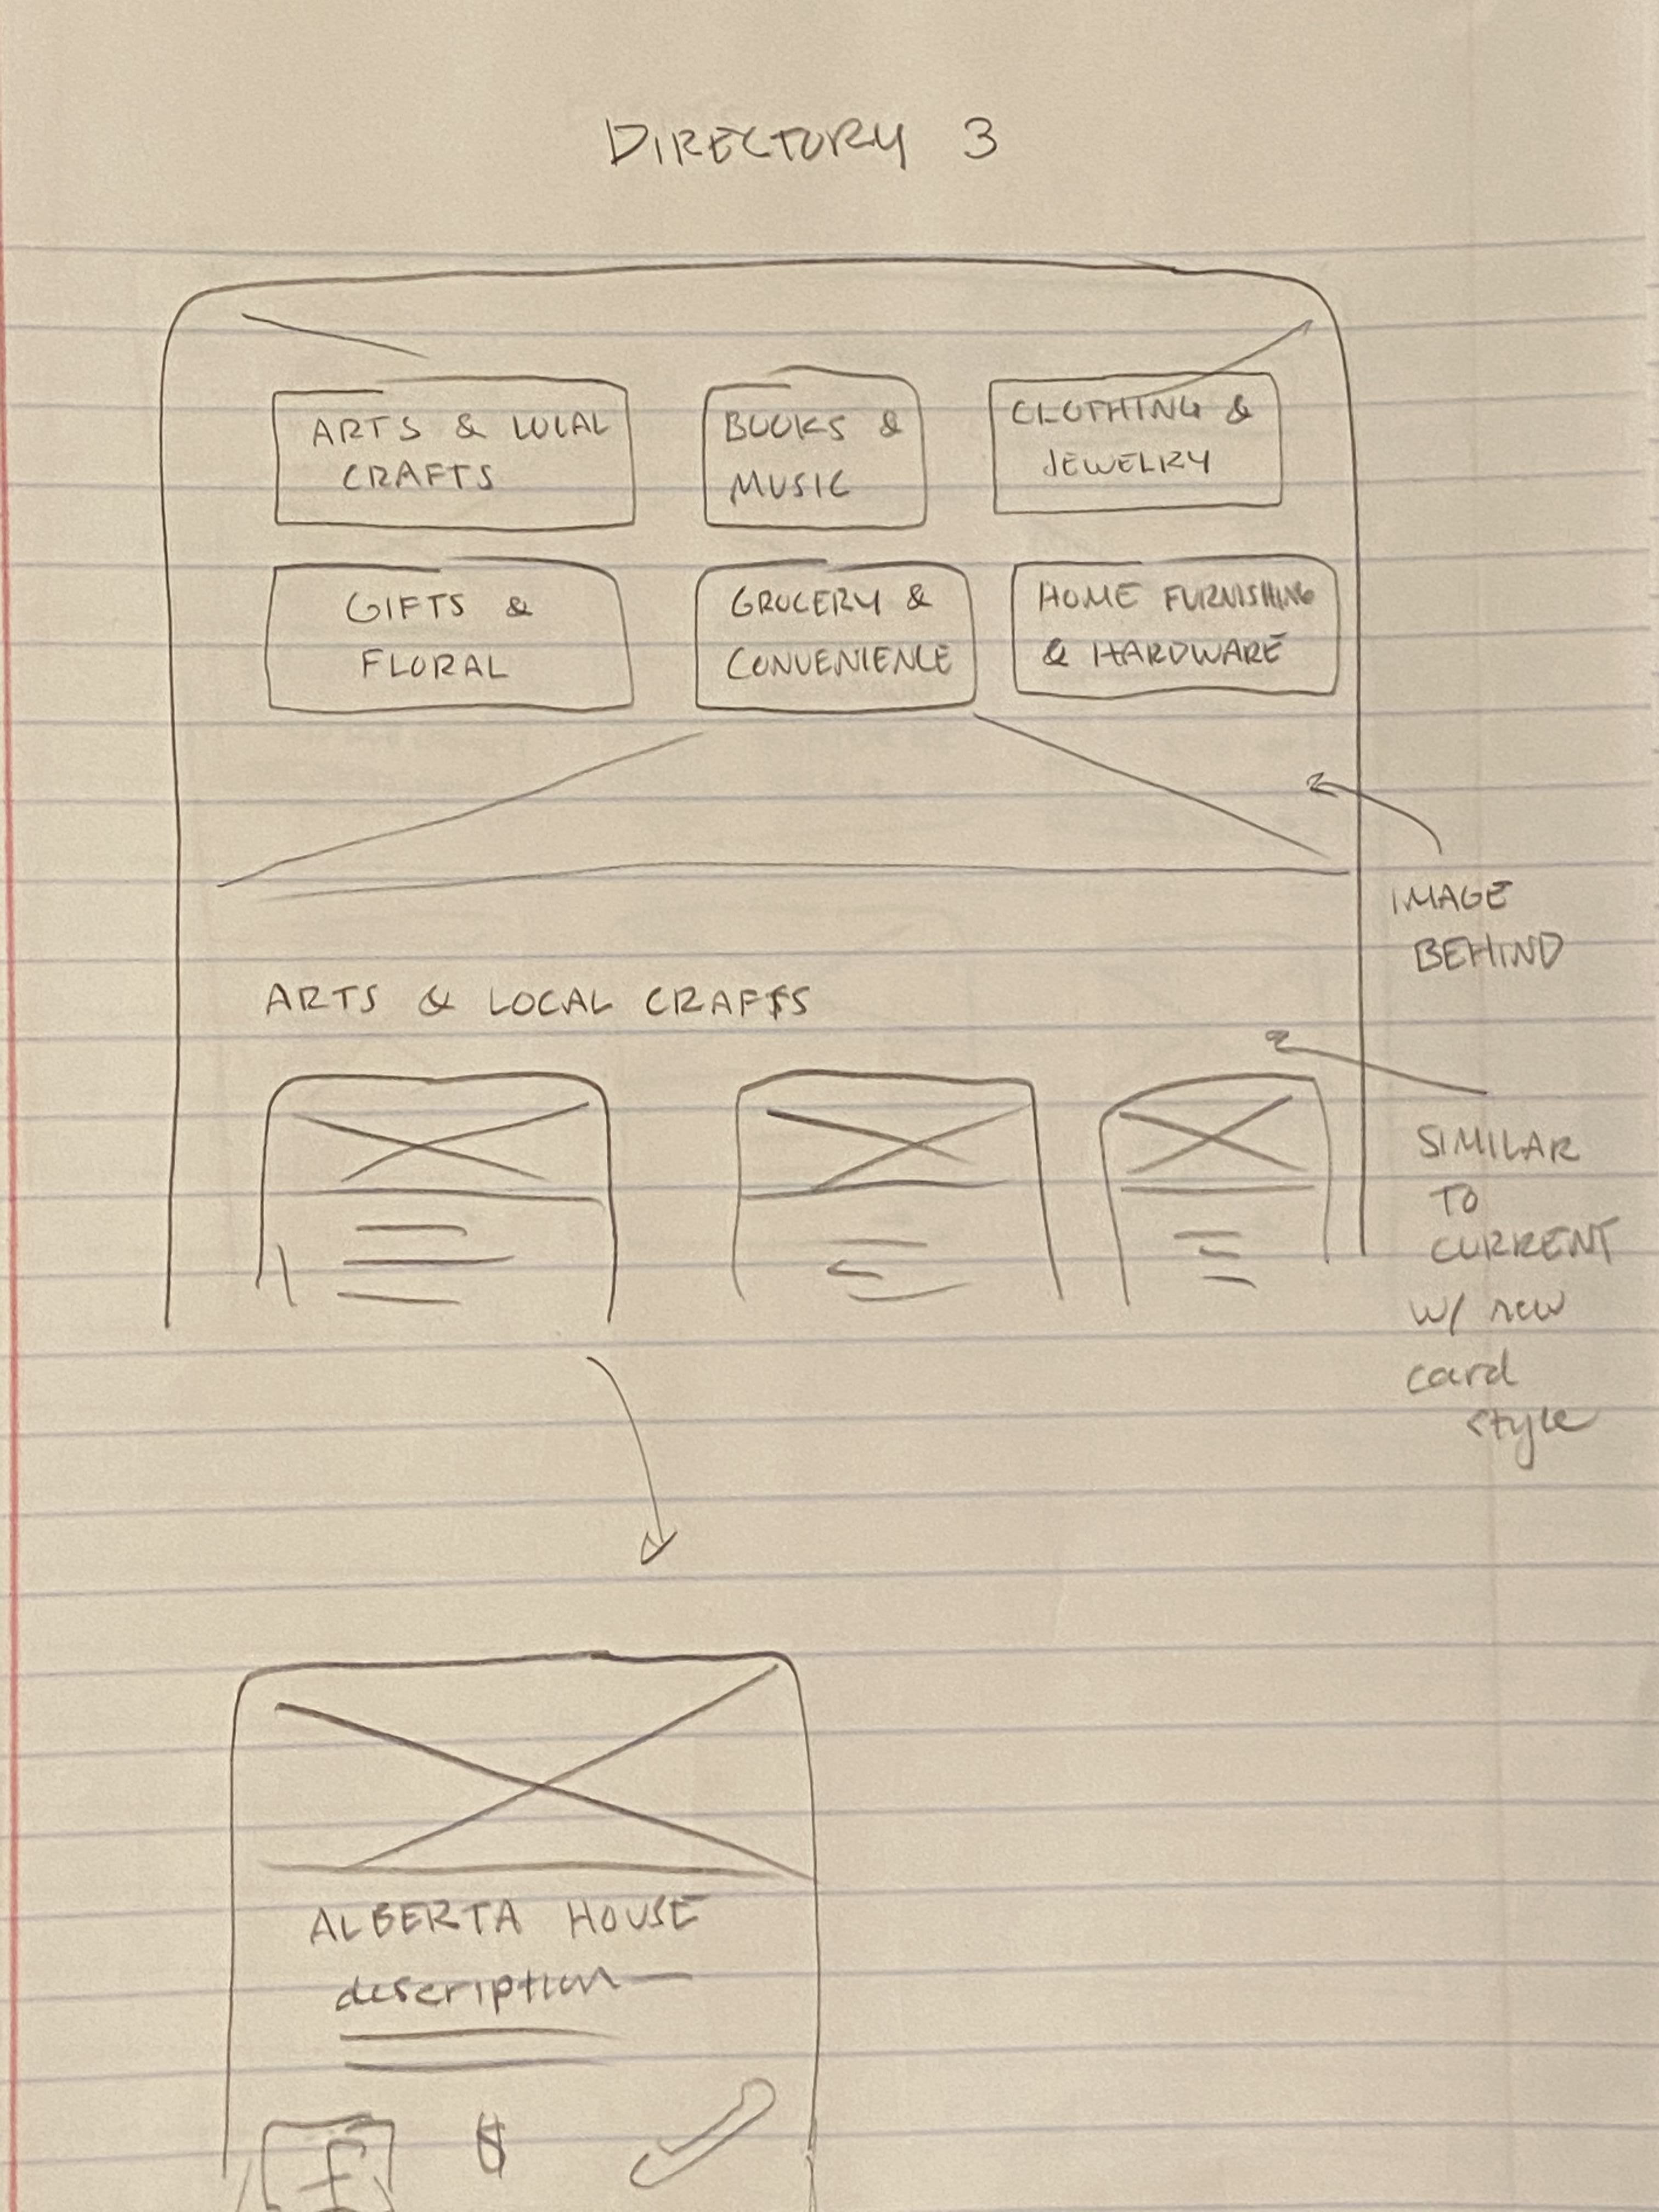 DIRECTORY 3
ARTS & LOCAL
CRAFTS
BOOKS &
MUSIC
CLOTHING &
JEWELRY
GIFTS &
FLORAL
GROCERY &
CONVENIENCE
HOME FURNISHING
& HARDWARE
IMAGE
BEHIND
ARTS & LOCAL CRAFTS
SIMILAR
TO
CURRENT
w/ new
card
style
ALBERTA HOUSE
description
f
$